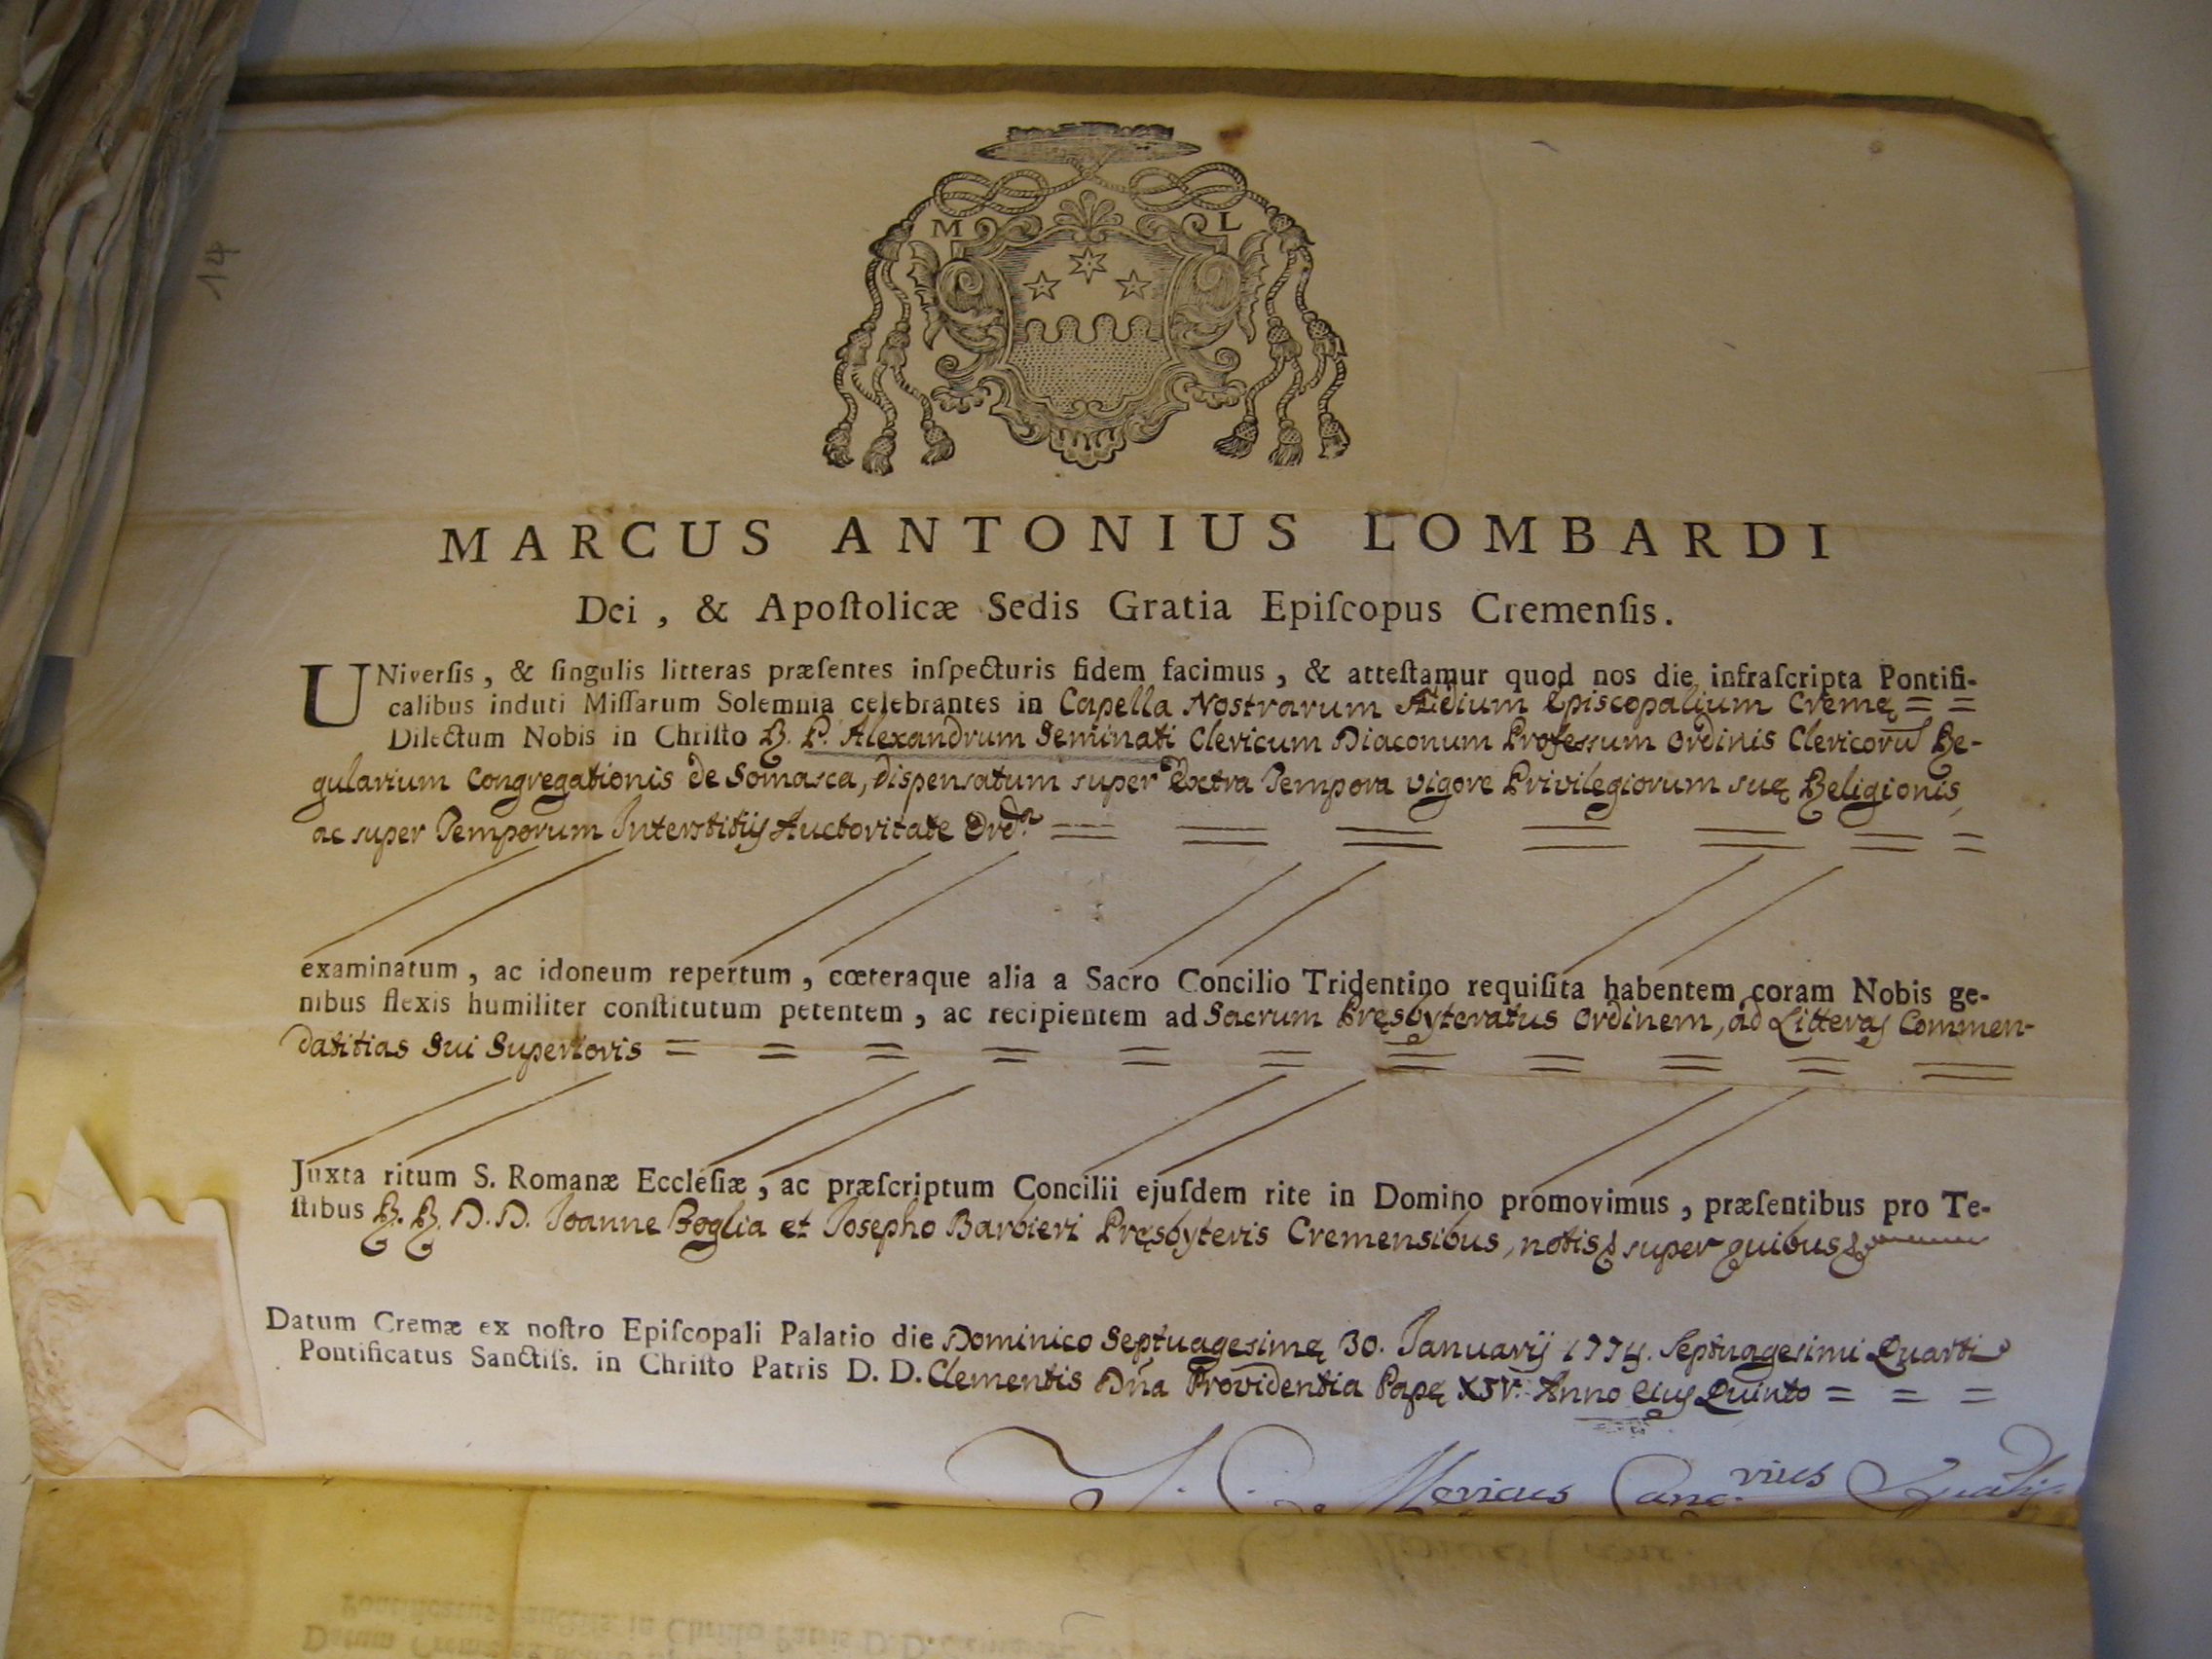 14
M L
MARCUS ANTONIUS LOMBARDI
Dei , & Apoſtolicæ Sedis Gratia Epiſcopus Cremenſis.
UNiverſis , & ſingulis litteras præſentes inſpecturis fidem facimus , & atteſtamur quod nos die infraſcripta Pontifi-
calibus induti Miſſarum Solemnia celebrantes in Capella Nostrarum Ædium Episcopalium Cremę = =
Dilectum Nobis in Chriſto R. P. Alexandrum Seminati Clericum Diaconum Professum Ordinis Clericorũ Re-
gularium Congregationis de Somasca, dispensatum super Extra Tempora vigore Privilegiorum suę Religionis,
ac super Temporum Interstitijs Auctoritate Ord.ª = = = = = = =
examinatum , ac idoneum repertum , cœteraque alia a Sacro Concilio Tridentino requiſita habentem coram Nobis ge-
nibus flexis humiliter conſtitutum petentem , ac recipientem ad Sacrum Pręsbyteratus Ordinem, ad Litteras Commen-
datitias Sui Superioris = = = = = = = = = = =
Juxta ritum S. Romanæ Eccleſiæ , ac præſcriptum Concilii ejuſdem rite in Domino promovimus , præſentibus pro Te-
ſtibus R. R. D. D. Joanne Foglia et Josepho Barbieri Pręsbyteris Cremensibus, notis & super quibus &
Datum Cremæ ex noſtro Epiſcopali Palatio die Dominico Septuagesimę 30. Januarij 1774. Septuagesimi Quarti
Pontificatus Sanctiſs. in Chriſto Patris D. D. Clementis Dña Providentia Papę XIV. Anno Ejus Quinto = = =